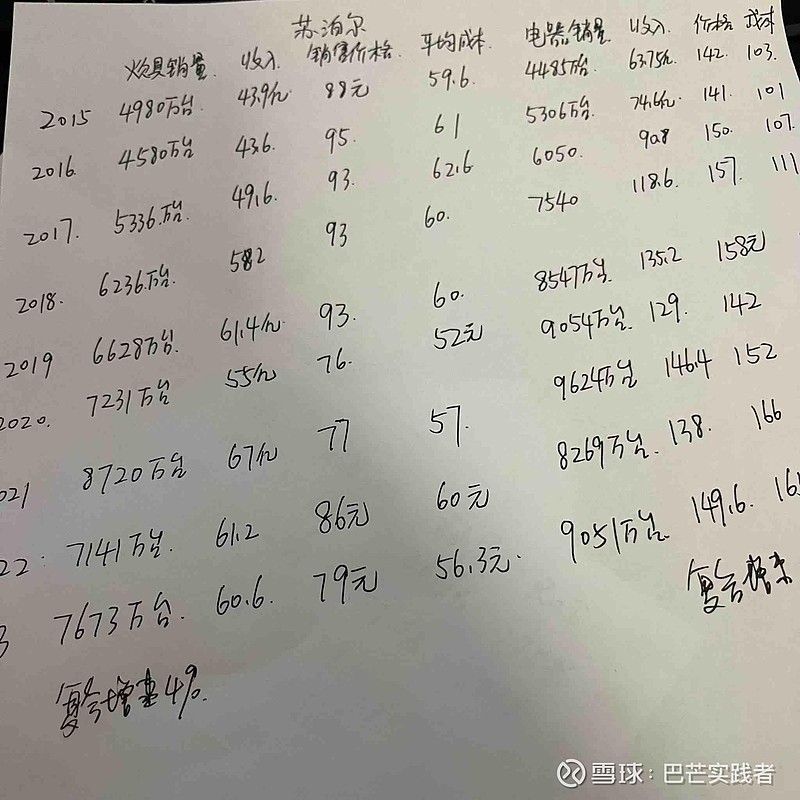 苏泊尔
炊具销量 收入 销售价格 平均成本 电器销量 收入 价格 成本
2015 4980万台 43.9亿 88元 59.6 4485万台 63.75亿 142 103
2016 4580万台 43.6 95 61 5306万台 74.6亿 141 101
2017 5336万台 49.6 93 62.6 6050 90.8 150 107
2018 6236万台 58.2 93 60 7540 118.6 157 111
2019 6628万台 61.4亿 93 60 8547万台 135.2 158元
2020 7231万台 55亿 76 52元 9054万台 129 142
021 8720万台 67亿 77 57 9624万台 146.4 152
22 7141万台 61.2 86元 60元 8269万台 138 166
3 7673万台 60.6 79元 56.3元 9051万台 149.6
复合增速4% 复合增速
雪球：巴芒实践者